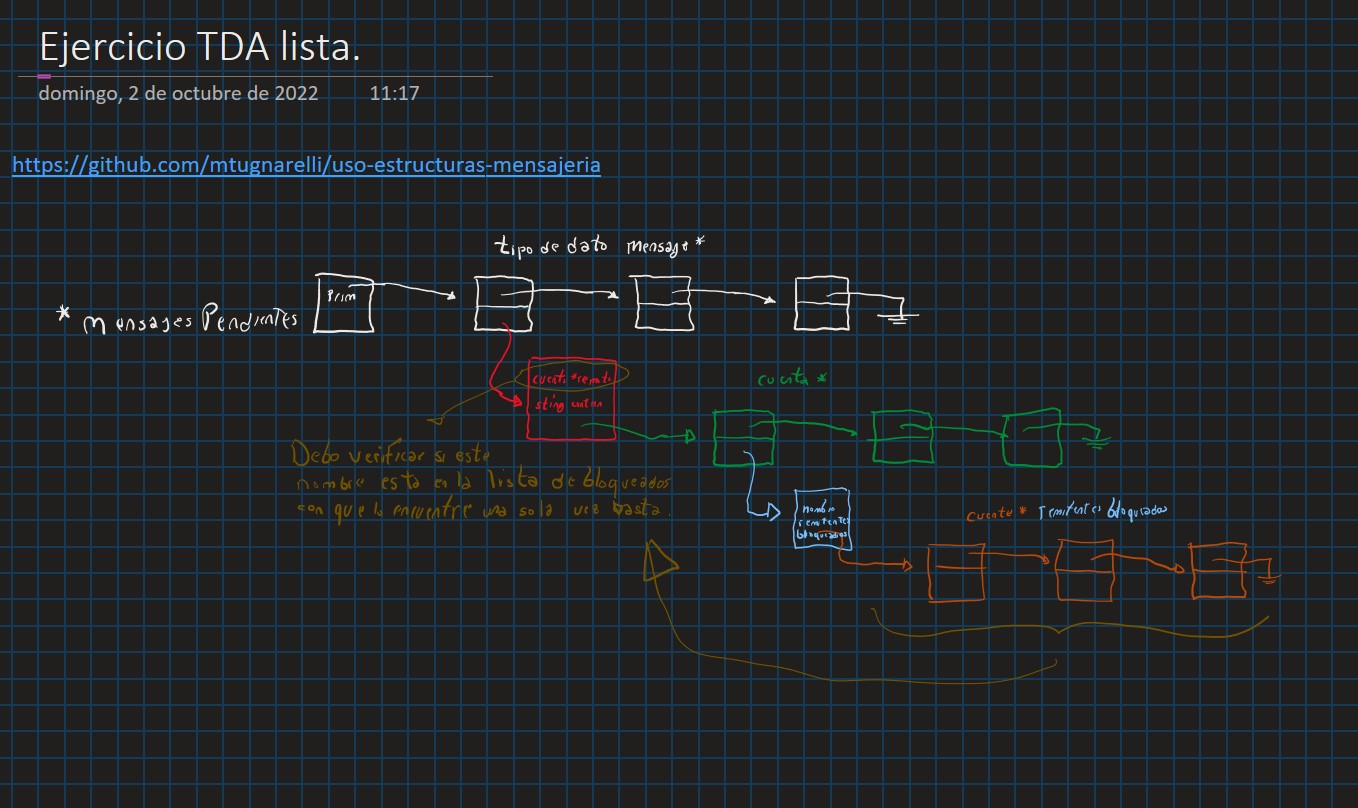 Ejercicio TDA lista.
domingo, 2 de octubre de 2022 11:17
https://github.com/mtugnarelli/uso-estructuras-mensajeria
tipo de dato mensage *
* mensages Pendientes
Prim
cuenta *
Debo verificar si este
nombre esta en la lista de bloqueados
con que lo encuentre una sola vez basta.
nombre
remitentes
bloqueados
cuenta * remitentes bloqueados